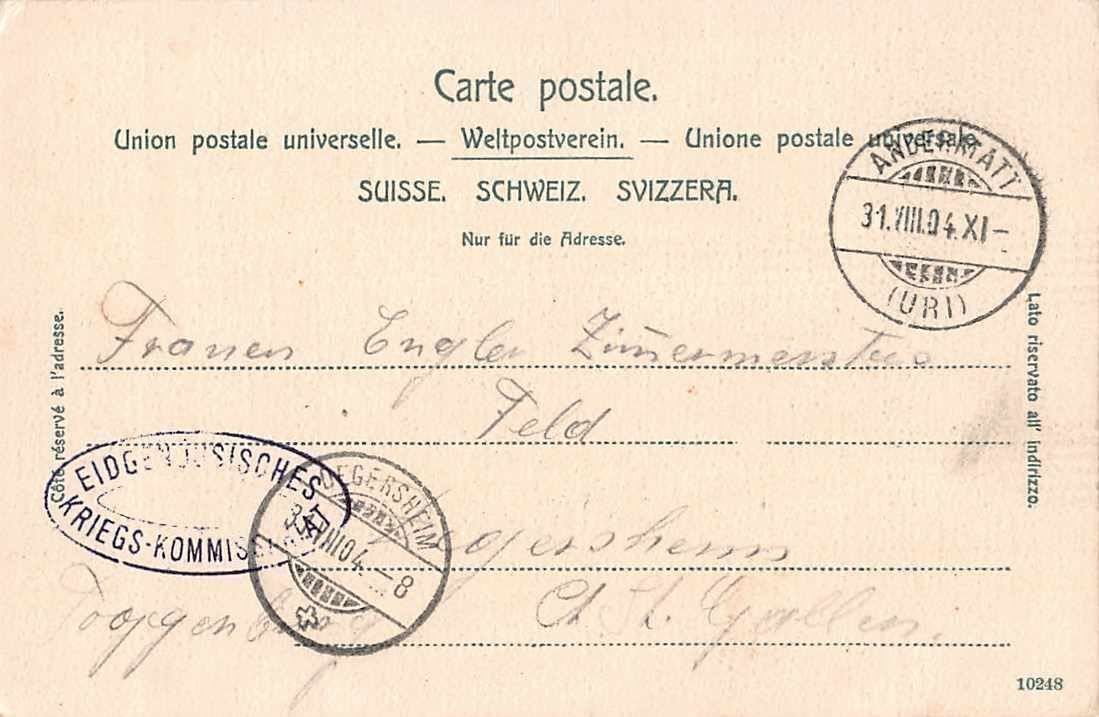 Carte postale.
Union postale universelle. — Weltpostverein. — Unione postale universale.
SUISSE. SCHWEIZ. SVIZZERA.
Nur für die Adresse.
ANDERMATT
31.VIII.04.XI-
(URI)
Côté réservé à l'adresse.
Lato riservato all' indirizzo.
Frauen Engler
Feld
EIDGENÖSSISCHES
KRIEGS-KOMMISSARIAT
DEGERSHEIM
VIII 04.-8
Degersheim
Toggenburg Ct. St. Gallen.
10248